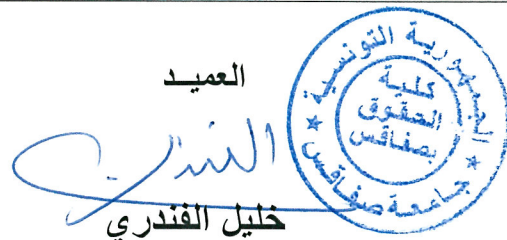 العميـد
خليل الفندري
الجمهورية التونسية
جامعة صفاقس
كلية
الحقوق
بصفاقس